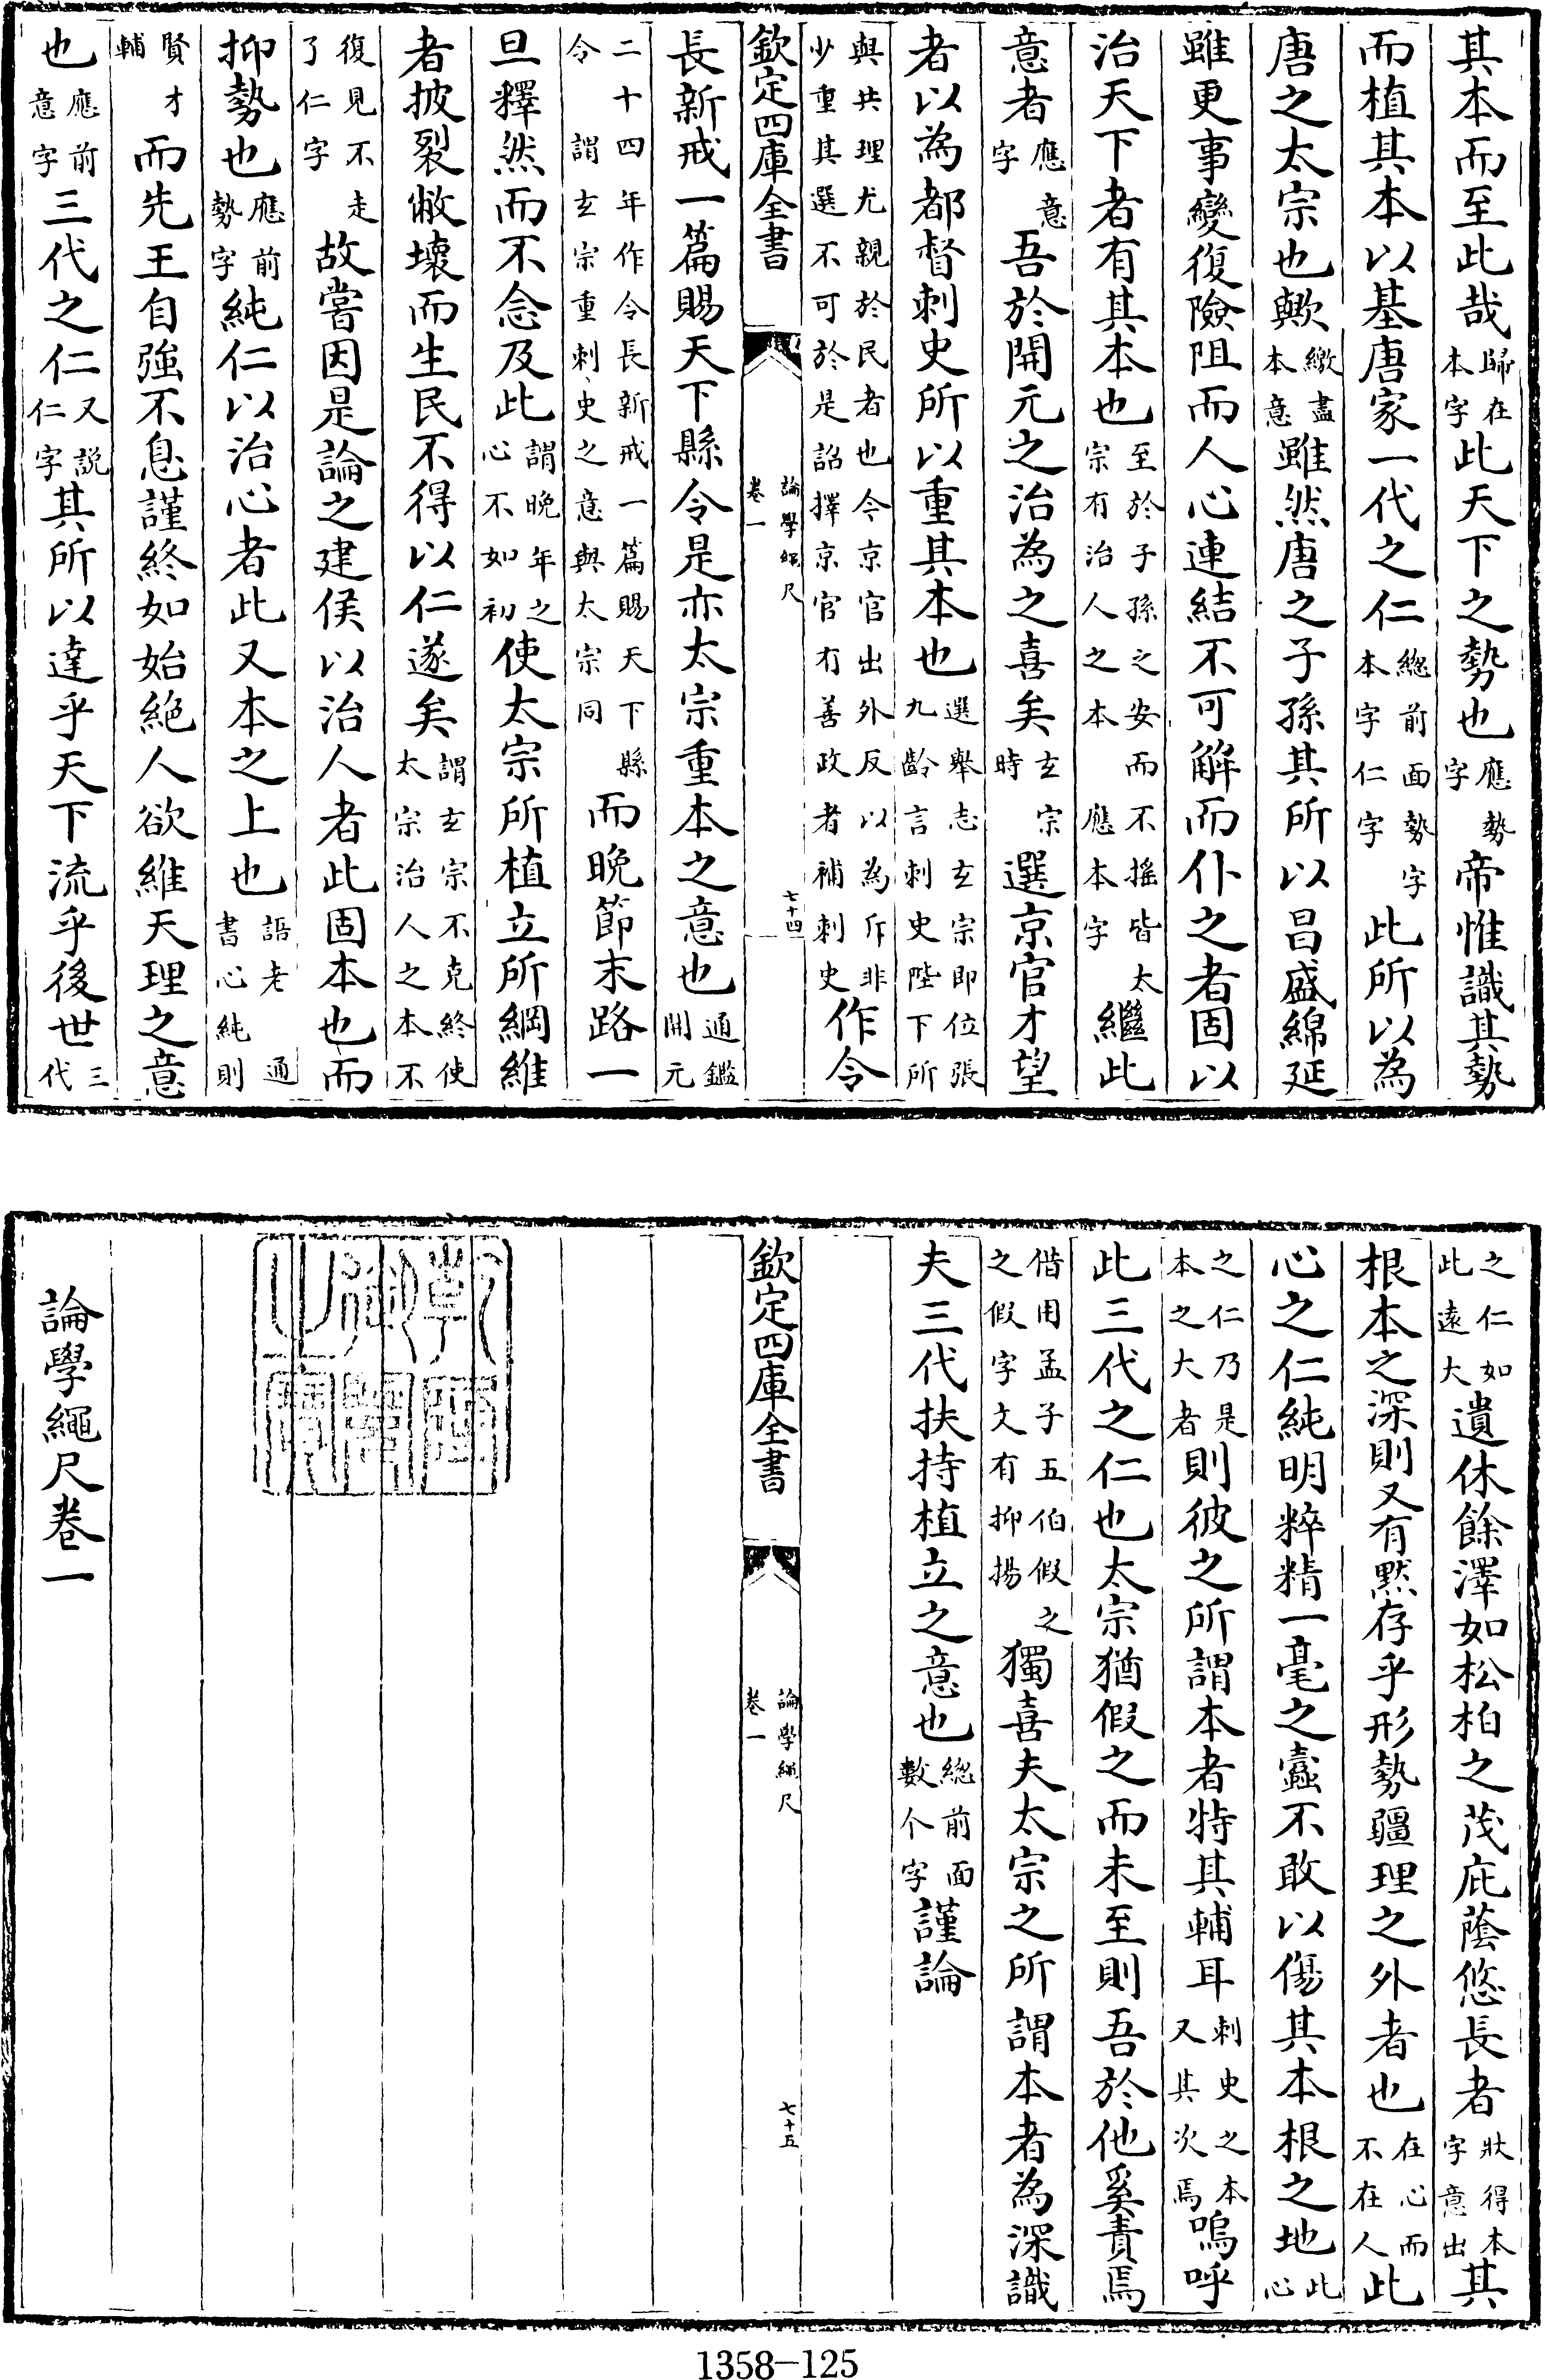 其本而至此哉歸在本字此天下之勢也應勢字帝惟識其勢
而植其本以基唐家一代之仁總前面勢字本字仁字此所以為
唐之太宗也歟繳盡本意雖然唐之子孫其所以昌盛綿延
雖更事變復險阻而人心連結不可解而仆之者固以
治天下者有其本也至於子孫之安而不搖皆太宗有治人之本應本字繼此
意者應意字吾於開元之治為之喜矣玄宗時選京官才望
者以為都督刺史所以重其本也選舉志玄宗即位張九齡言刺史陛下所
與共理尤親於民者也今京官出外反以為斥非少重其選不可於是詔擇京官有善政者補刺史作令
欽定四庫全書 論學繩尺 卷一 七十四
長新戒一篇賜天下縣令是亦太宗重本之意也通鑑開元
二十四年作令長新戒一篇賜天下縣令謂玄宗重刺史之意與太宗同而晩節末路一
旦釋然而不念及此謂晚年之心不如初使太宗所植立所綱維
者披裂敝壞而生民不得以仁遂矣謂玄宗不克終使太宗治人之本不
復見不走了仁字故嘗因是論之建侯以治人者此固本也而
抑勢也應前勢字純仁以治心者此又本之上也語老通書心純則
賢才輔而先王自強不息謹終如始絕人欲維天理之意
也應前意字三代之仁又説仁字其所以達乎天下流乎後世三代
之仁如此遠大遺休餘澤如松柏之茂庇蔭悠長者狀得本字意出其
根本之深則又有黙存乎形勢疆理之外者也在心而不在人此
心之仁純明粹精一毫之蠹不敢以傷其本根之地此心
之仁乃是本之大者則彼之所謂本者特其輔耳刺史之本又其次焉嗚呼
此三代之仁也太宗猶假之而未至則吾於他奚責焉
借用孟子五伯假之之假字文有抑揚獨喜夫太宗之所謂本者為深識
夫三代扶持植立之意也總前面數个字謹論
欽定四庫全書 論學繩尺 卷一 七十五
論學繩尺卷一
1358-125